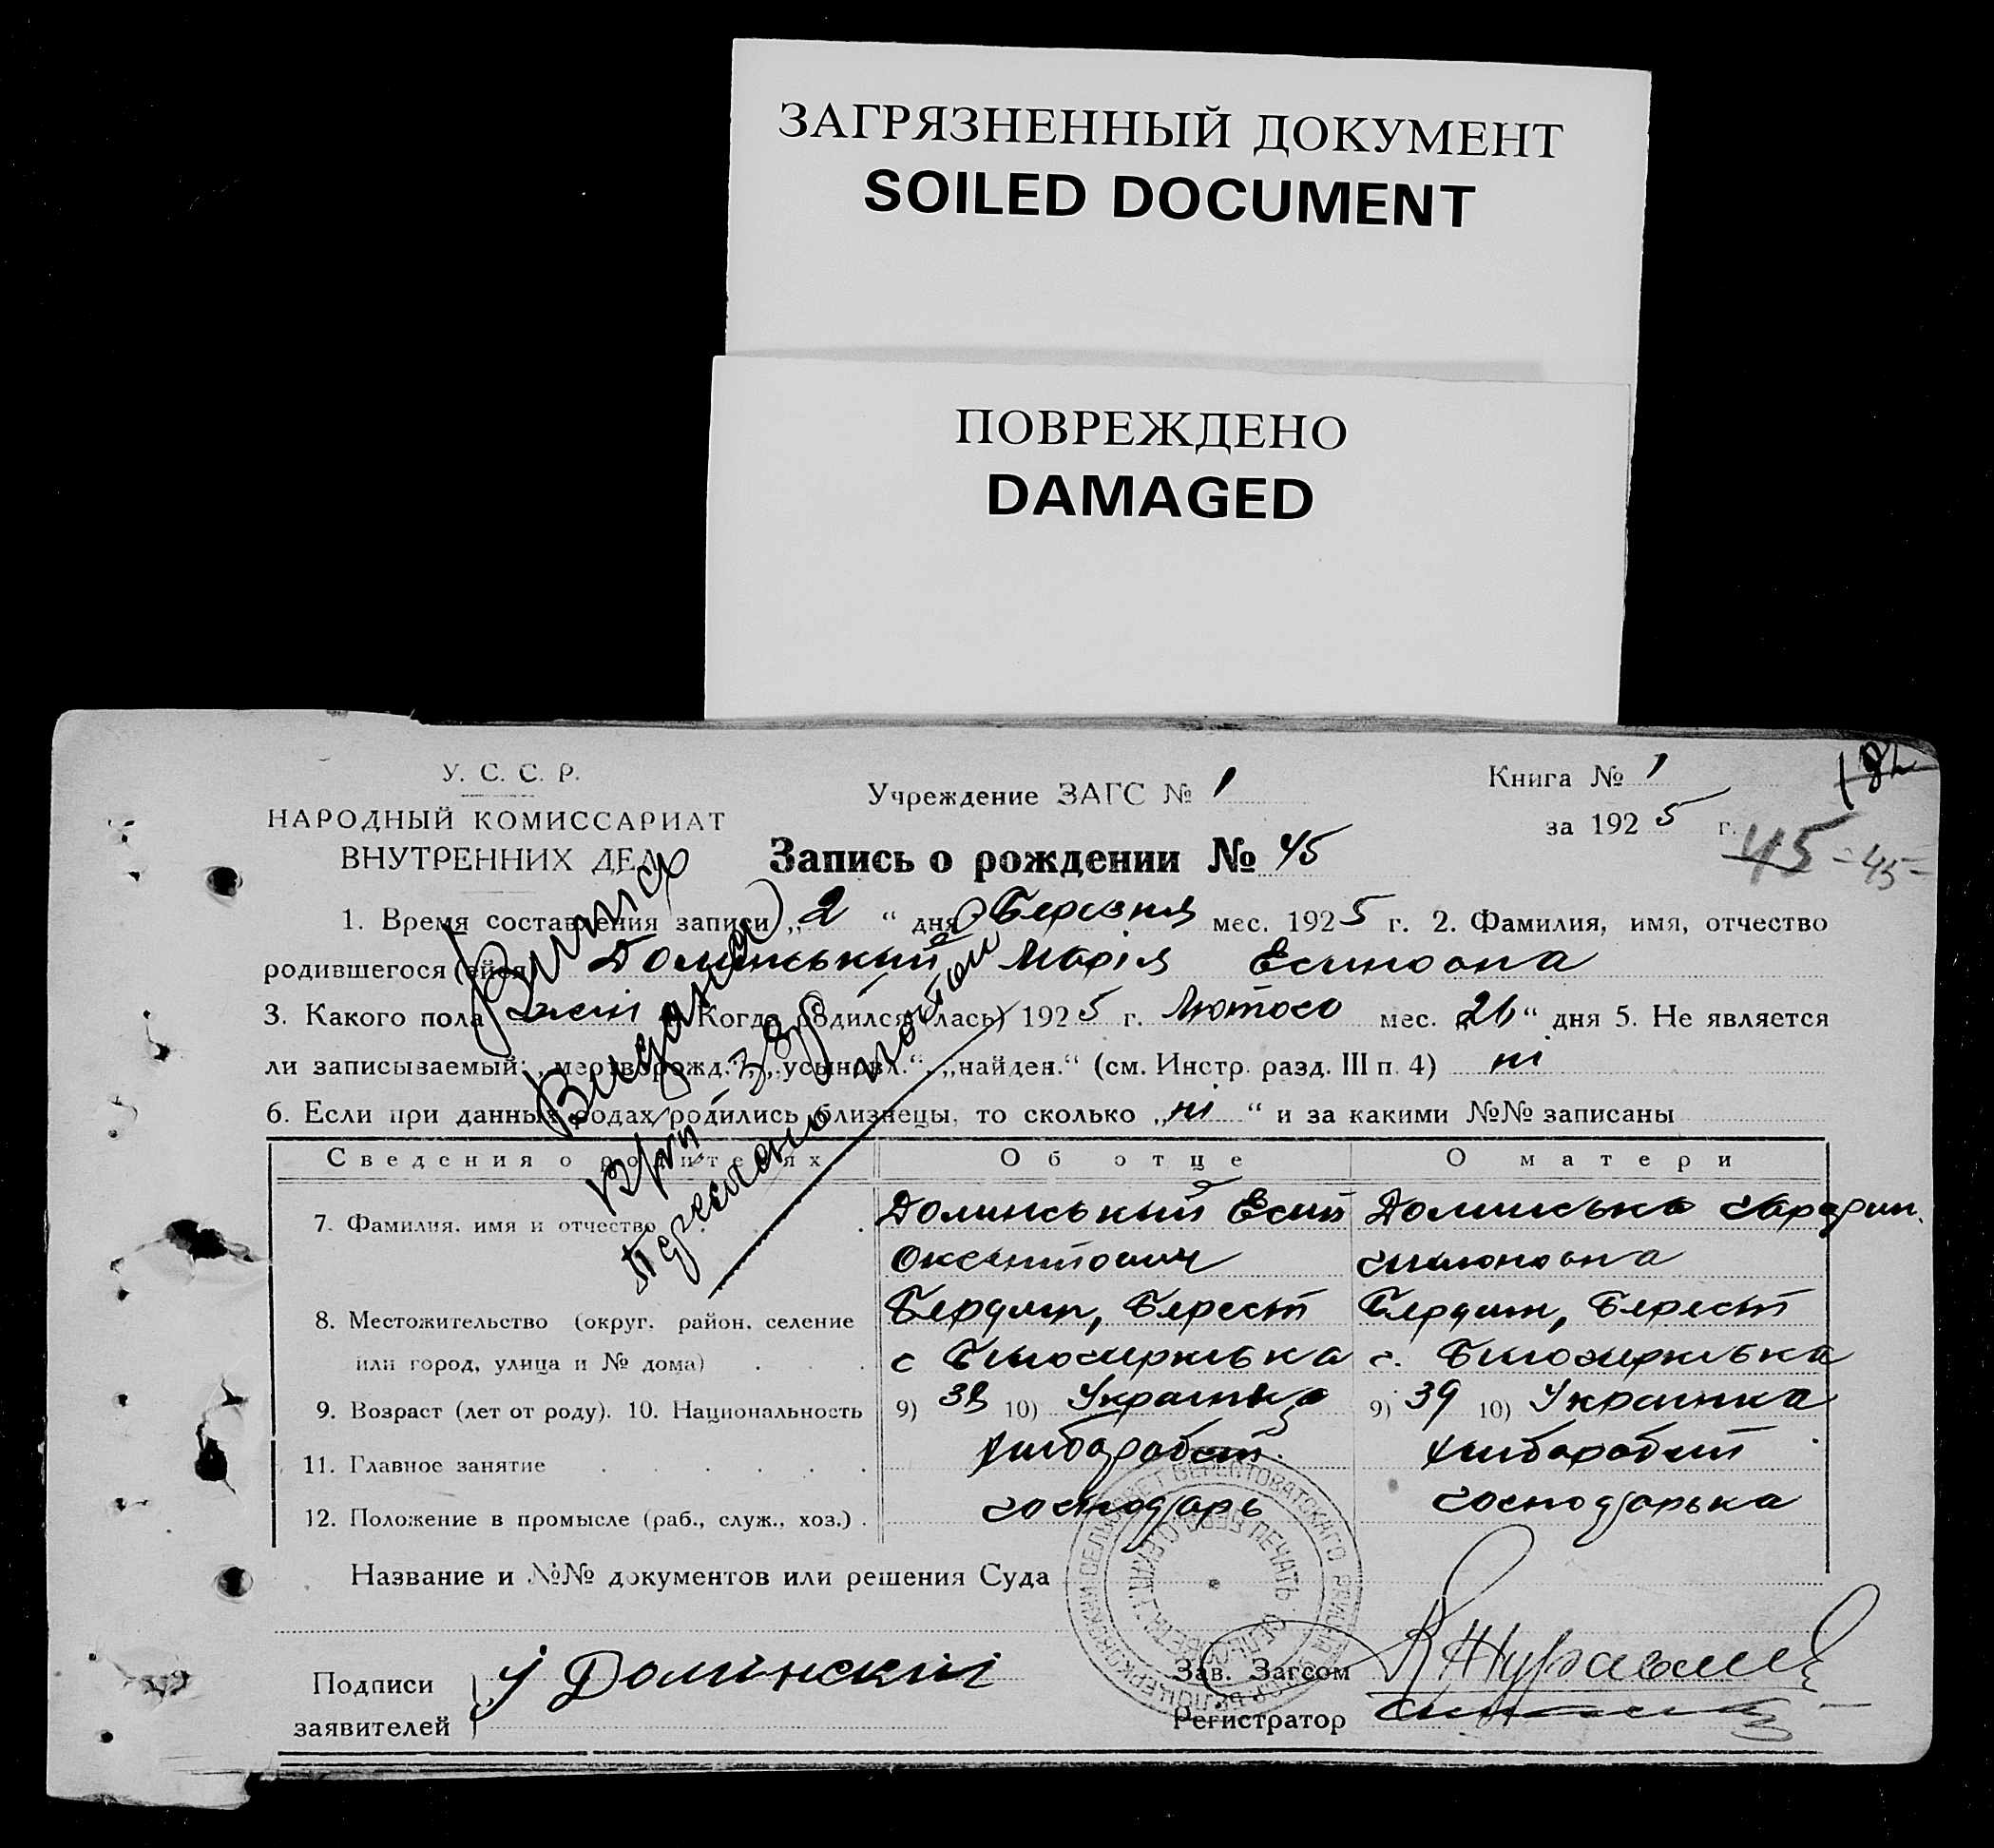 ЗАГРЯЗНЕННЫЙ ДОКУМЕНТ
SOILED DOCUMENT
ПОВРЕЖДЕНО
DAMAGED
У. С. С. Р.
НАРОДНЫЙ КОМИССАРИАТ
ВНУТРЕННИХ ДЕЛ
Учреждение ЗАГС № 1
Книга № 1
за 1925 г.
45 -45-
Запись о рождении № 45
1. Время составления записи „2“ дня Березня мес. 1925 г. 2. Фамилия, имя, отчество
родившегося (ейся) Долинський Марія Есиповна
3. Какого пола жін 4. Когда родился (лась) 1925 г. Лютого мес. „26“ дня 5. Не является
ли записываемый: „мертворожд.“, „усыновл.“, „найден.“ (см. Инстр. разд. III п. 4) ні
6. Если при данных родах родились близнецы, то сколько „ні“ и за какими №№ записаны
Выпис
Видана
Сведения о родителях Об отце О матери
7. Фамилия, имя и отчество Долинський Есип Долинська
Оксентович
8. Местожительство (округ, район, селение Бердич, Берест Бердич, Берест
или город, улица и № дома) с с.
9. Возраст (лет от роду). 10. Национальность 9) 38 10) 9) 39 10) Українка
11. Главное занятие хлібороб хлібороб
12. Положение в промысле (раб., служ., хоз.) господарь господарька
Название и №№ документов или решения Суда
Подписи
заявителей
Долинский
Зав. Загсом
Регистратор